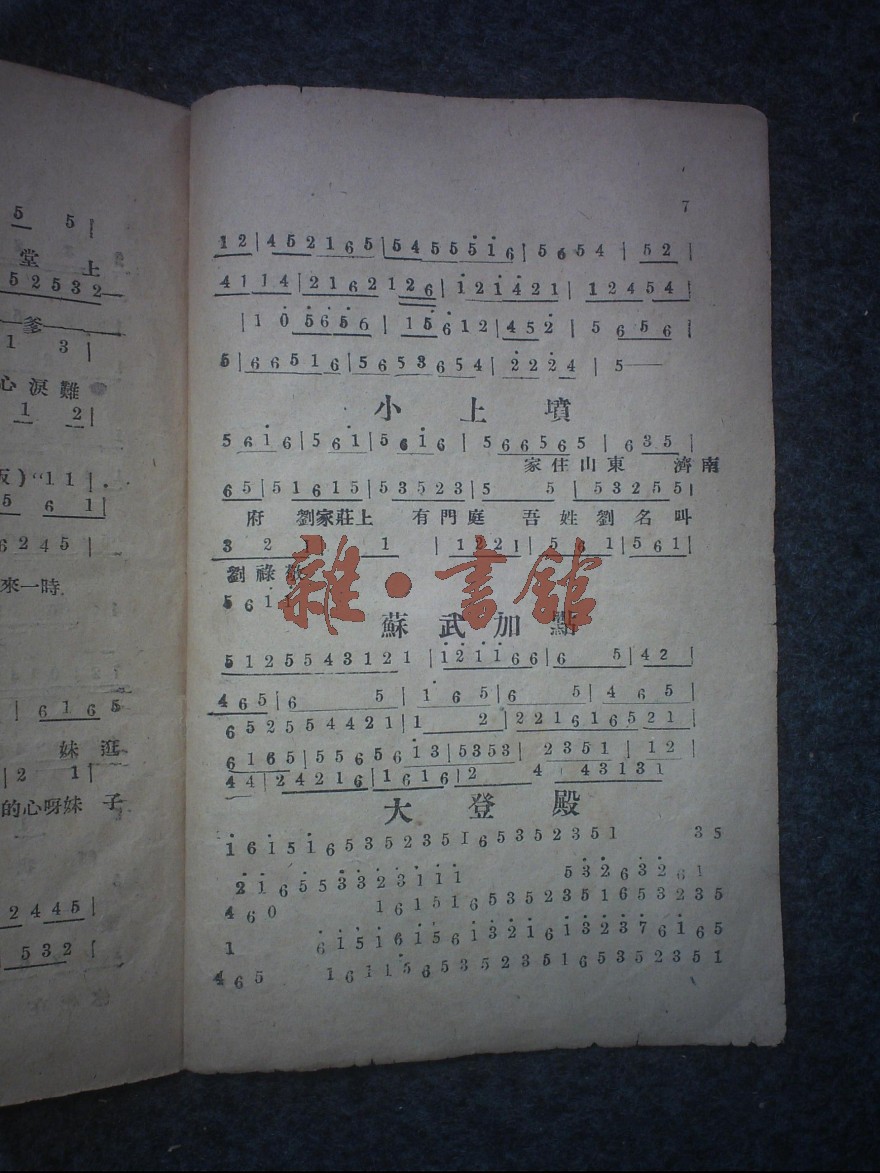 5 5 |
堂 上
5 2 5 3 2
爹
1 3 |
心淚難
1 2 |
板)"1 1 | .
5 6 1 |
6 2 4 5 |
來一時.
| 6 1 6 5
妹 逛
| 2 1 |
的心呀妹 子
2 4 4 5 |
| 5 3 2 |
7
1 2 | 4 5 2 1 6 5 | 5 4 5 5 5 i 6 | 5 6 5 4 | 5 2 |
4 1 1 4 | 2 1 6 2 1 2 6 | i 2 i 4 2 1 | 1 2 4 5 4 |
| 1 0 5 6 5 6 | 1 5 6 1 2 | 4 5 2 | 5 6 5 6 |
5 | 6 6 5 1 6 | 5 6 5 3 6 5 4 | 2 2 2 4 | 5 —
小 上 墳
5 6 i 6 | 5 6 i | 5 6 i 6 | 5 6 6 5 6 5 | 6 3 5 |
家住山東 濟南
6 5 | 5 1 6 1 5 | 5 3 5 2 3 | 5 5 | 5 3 2 5 5 |
府 劉家莊上 有門庭 吾姓劉名叫
3 2 1 1 | 1 2 2 1 | 5 6 1 | 5 6 1 |
劉祿敬
5 6 i 1
雜·書館
蘇 武 加 點
5 1 2 5 5 4 3 1 2 1 | i 2 i i 6 6 | 6 5 | 4 2 |
4 6 5 | 6 5 | i 6 5 | 6 5 | 4 6 5 |
6 5 2 5 5 4 4 2 1 | 1 2 | 2 2 1 6 1 6 5 2 1 |
6 1 6 5 | 5 5 6 5 6 i 3 | 5 3 5 3 | 2 3 5 1 | 1 2 |
4 4 | 2 4 2 1 6 | 1 6 1 6 | 2 4 4 3 1 3 1
大 登 殿
i 6 i 5 i 6 5 3 5 2 3 5 1 6 5 3 5 2 3 5 1 3 5
2 i 6 5 5 3 3 2 3 i i i 5 3 2 6 3 2 6 1
4 6 0 1 6 1 5 1 6 5 3 5 2 3 5 1 6 5 3 2 3 5
1 6 i 5 i 6 i 5 6 i 3 2 i 6 i 3 2 3 7 6 i 6 5
4 6 5 1 6 1 1 5 6 5 3 5 2 3 5 1 6 5 3 5 2 3 5 1